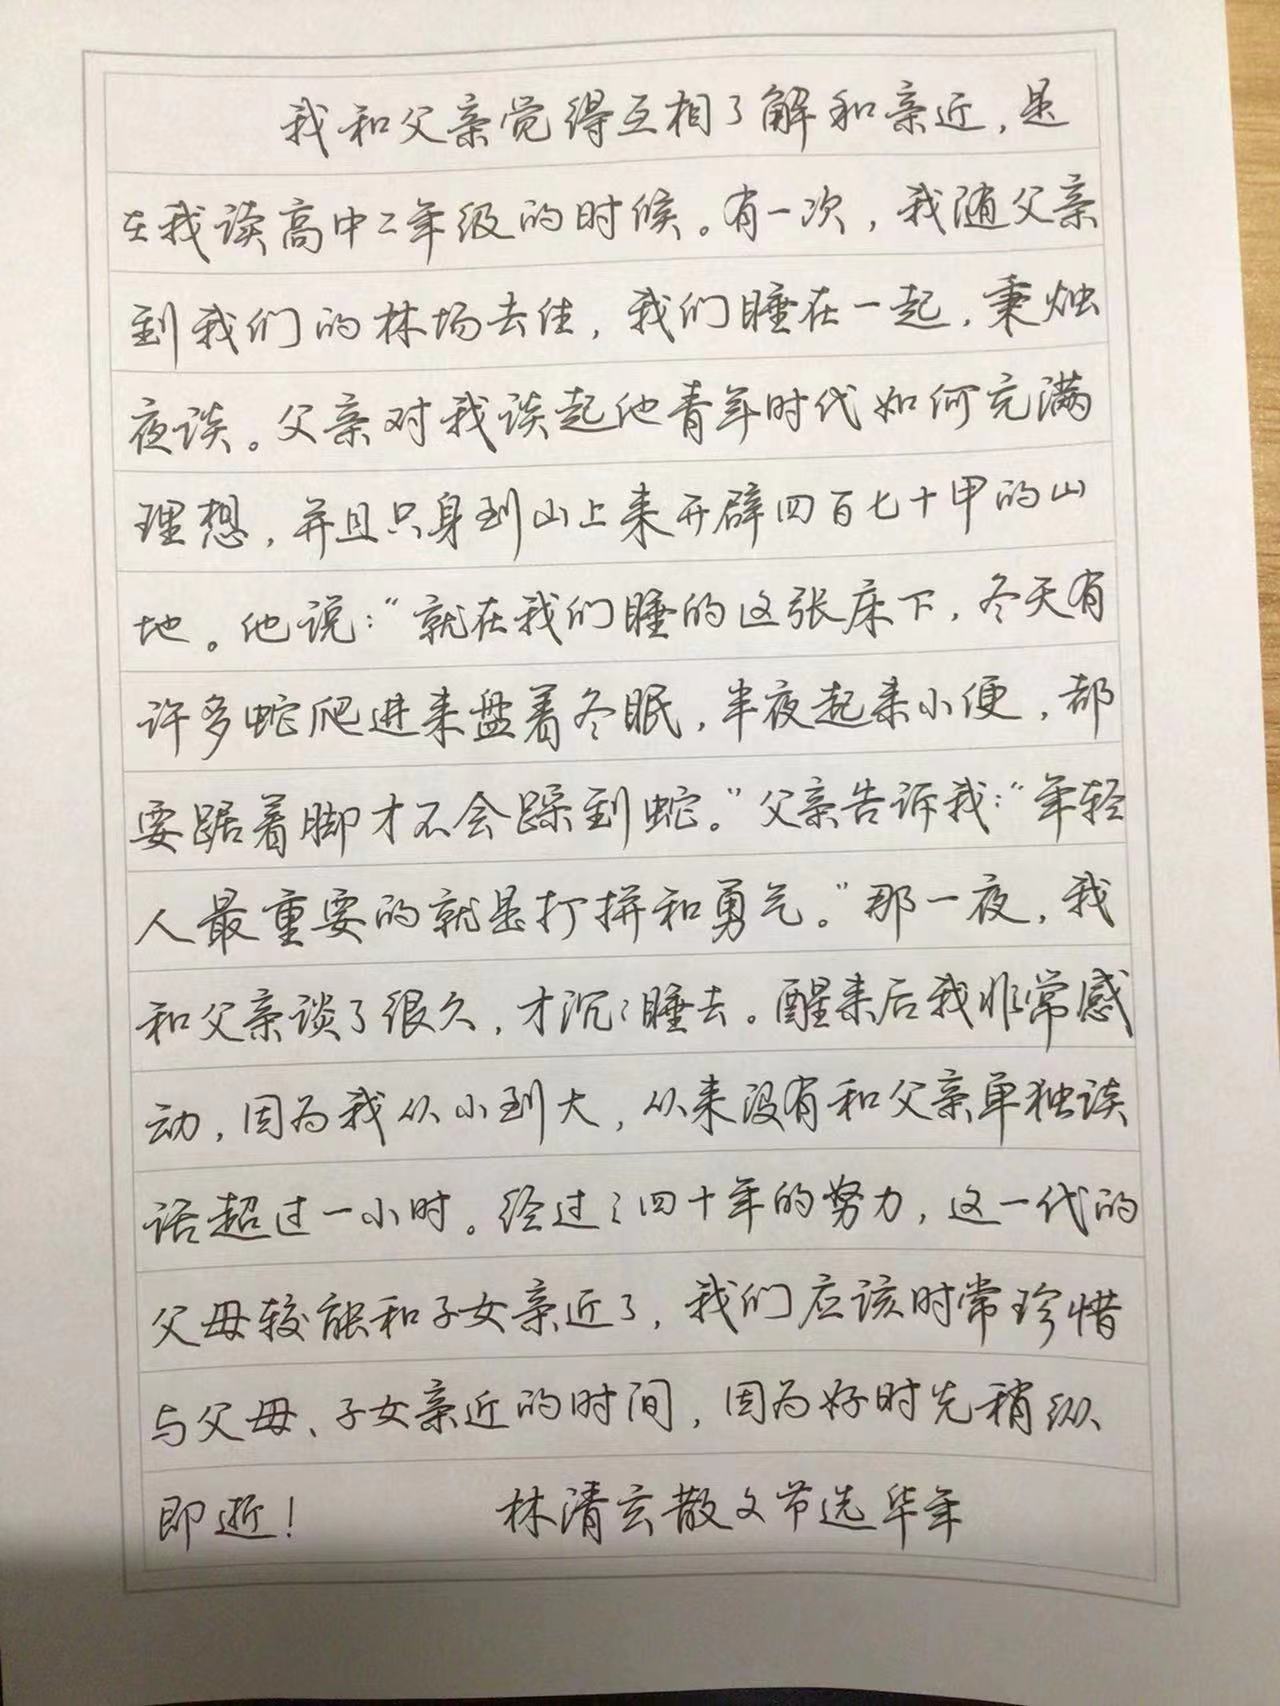 我和父亲觉得互相了解和亲近，是
在我读高中二年级的时候。有一次，我随父亲
到我们的林场去住，我们睡在一起，秉烛
夜谈。父亲对我谈起他青年时代如何充满
理想，并且只身到山上来开辟四百七十甲的山
地。他说：“就在我们睡的这张床下，冬天有
许多蛇爬进来盘着冬眠，半夜起来小便，都
要踞着脚才不会踩到蛇。”父亲告诉我：“年轻
人最重要的就是打拼和勇气。”那一夜，我
和父亲谈了很久，才沉沉睡去。醒来后我非常感
动，因为我从小到大，从来没有和父亲单独谈
话超过一小时。经过三四十年的努力，这一代的
父母较能和子女亲近了，我们应该时常珍惜
与父母、子女亲近的时间，因为好时光稍纵
即逝！ 林清玄散文节选华年